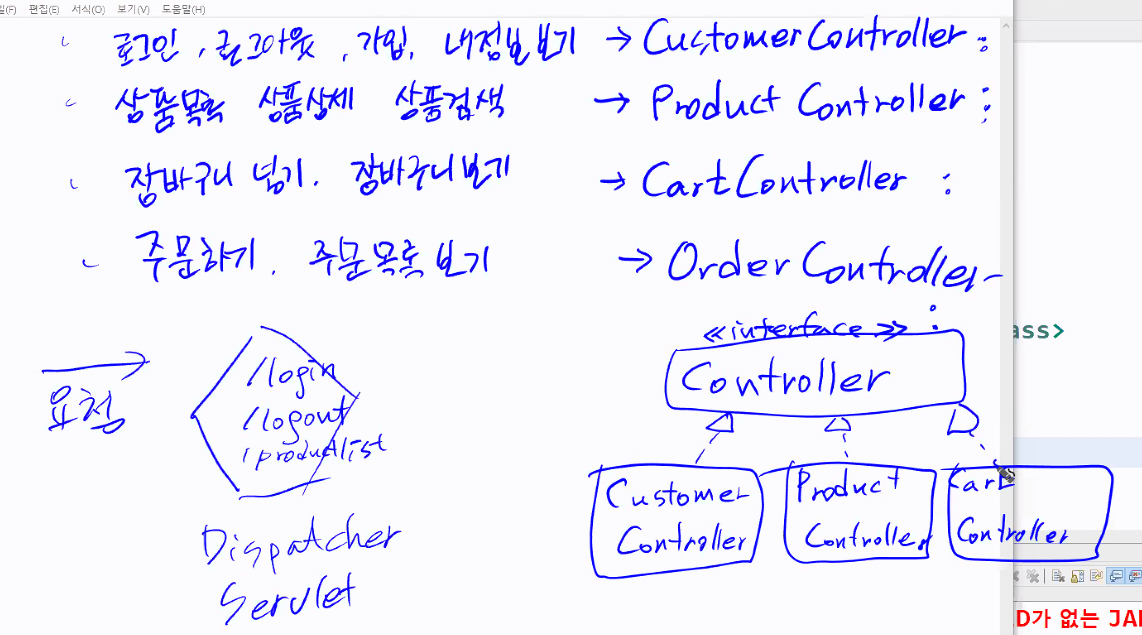 편집(E) 서식(O) 보기(V) 도움말(H)
로그인, 로그아웃, 가입, 내정보보기 → CustomerController :
상품목록 상품상세 상품검색 → Product Controller :
장바구니 넣기. 장바구니보기 → CartController :
주문하기. 주문목록보기 → Order Controller
:
요청
/login
/logout
/productlist
Dispatcher
Servlet
<<interface>>
Controller
Customer
Controller
Product
Controller
Cart
Controller
ass>
D가 없는 JAI